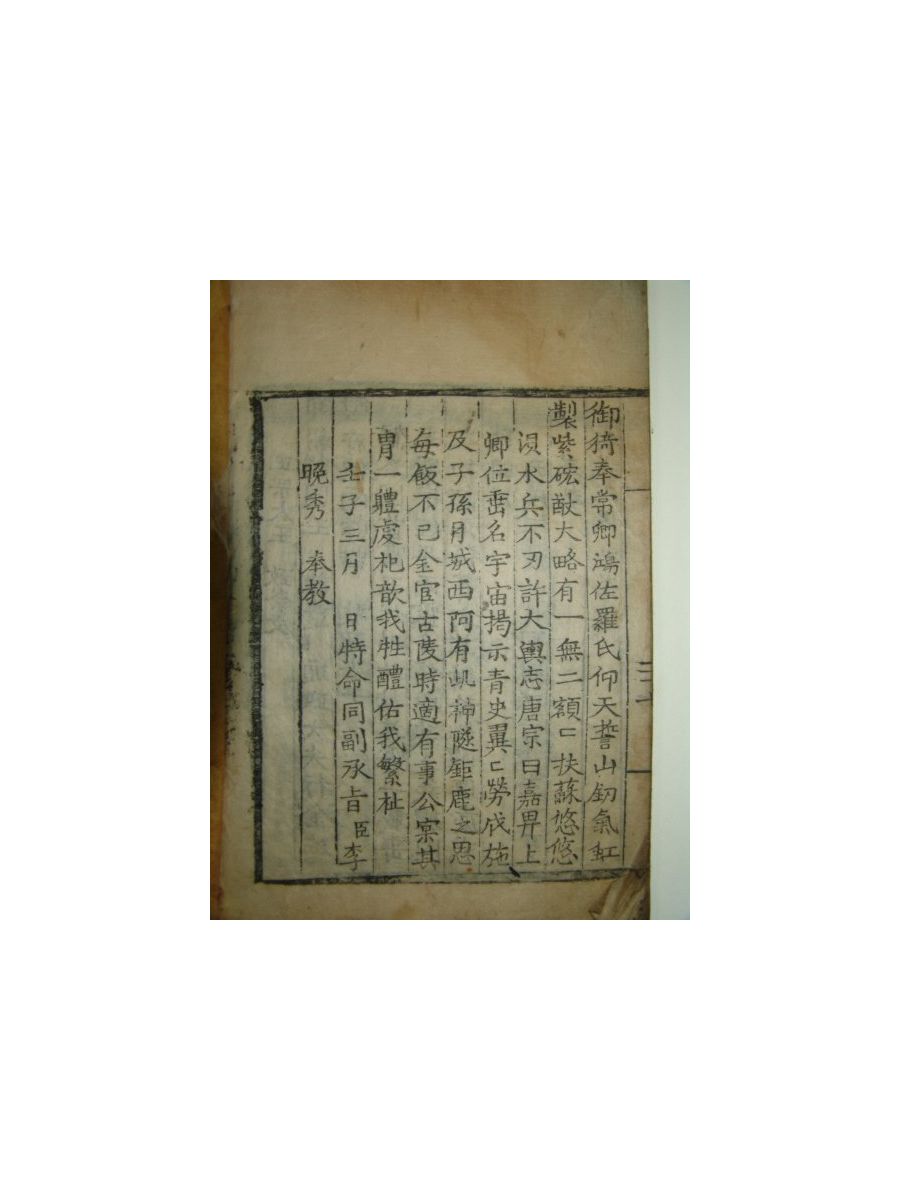 御猗奉常卿鴻佐羅氏仰天誓山釰氣虹
製紫硡猷大略有一無二額匚扶蘇悠悠
浿水兵不刃許大輿志唐宗曰嘉畀上
卿位名宇宙揭示青史翼匚勞伐施
及子孫月城西阿有屹神隧鉅鹿之思
每飯不已金官古陵時適有事公寀其
胄一軆虔祀歆我牲醴佑我繁祉
壬子三月 日特命同副承旨臣李
晩秀 奉教